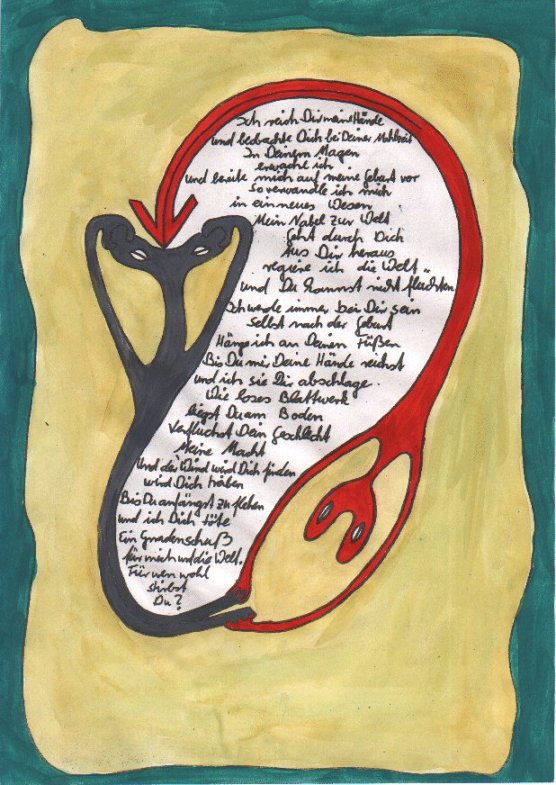 Ich reich Dir meine Hände
und beobachte Dich bei Deiner Mahlzeit
In Deinem Magen
erwache ich
und bereite mich auf meine Geburt vor
So verwandle ich mich
in ein neues Wesen
Mein Nabel zur Welt
geht durch Dich
Aus Dir heraus
regiere ich die Welt
und Du kannst nicht flüchten
Ich werde immer bei Dir sein
selbst nach der Geburt
Hänge ich an Deinen Füßen
Bis Du mir Deine Hände reichst
und ich sie Dir abschlage.
Wie loses Blattwerk
liegst Du am Boden
Verfluchst Dein Geschlecht
Meine Macht
Und der Wind wird Dich finden
wird Dich treiben
Bis Du anfängst zu flehen
und ich Dich töte
Ein Gnadenschuß
für mich und die Welt.
Für wen wohl
stirbst
Du?